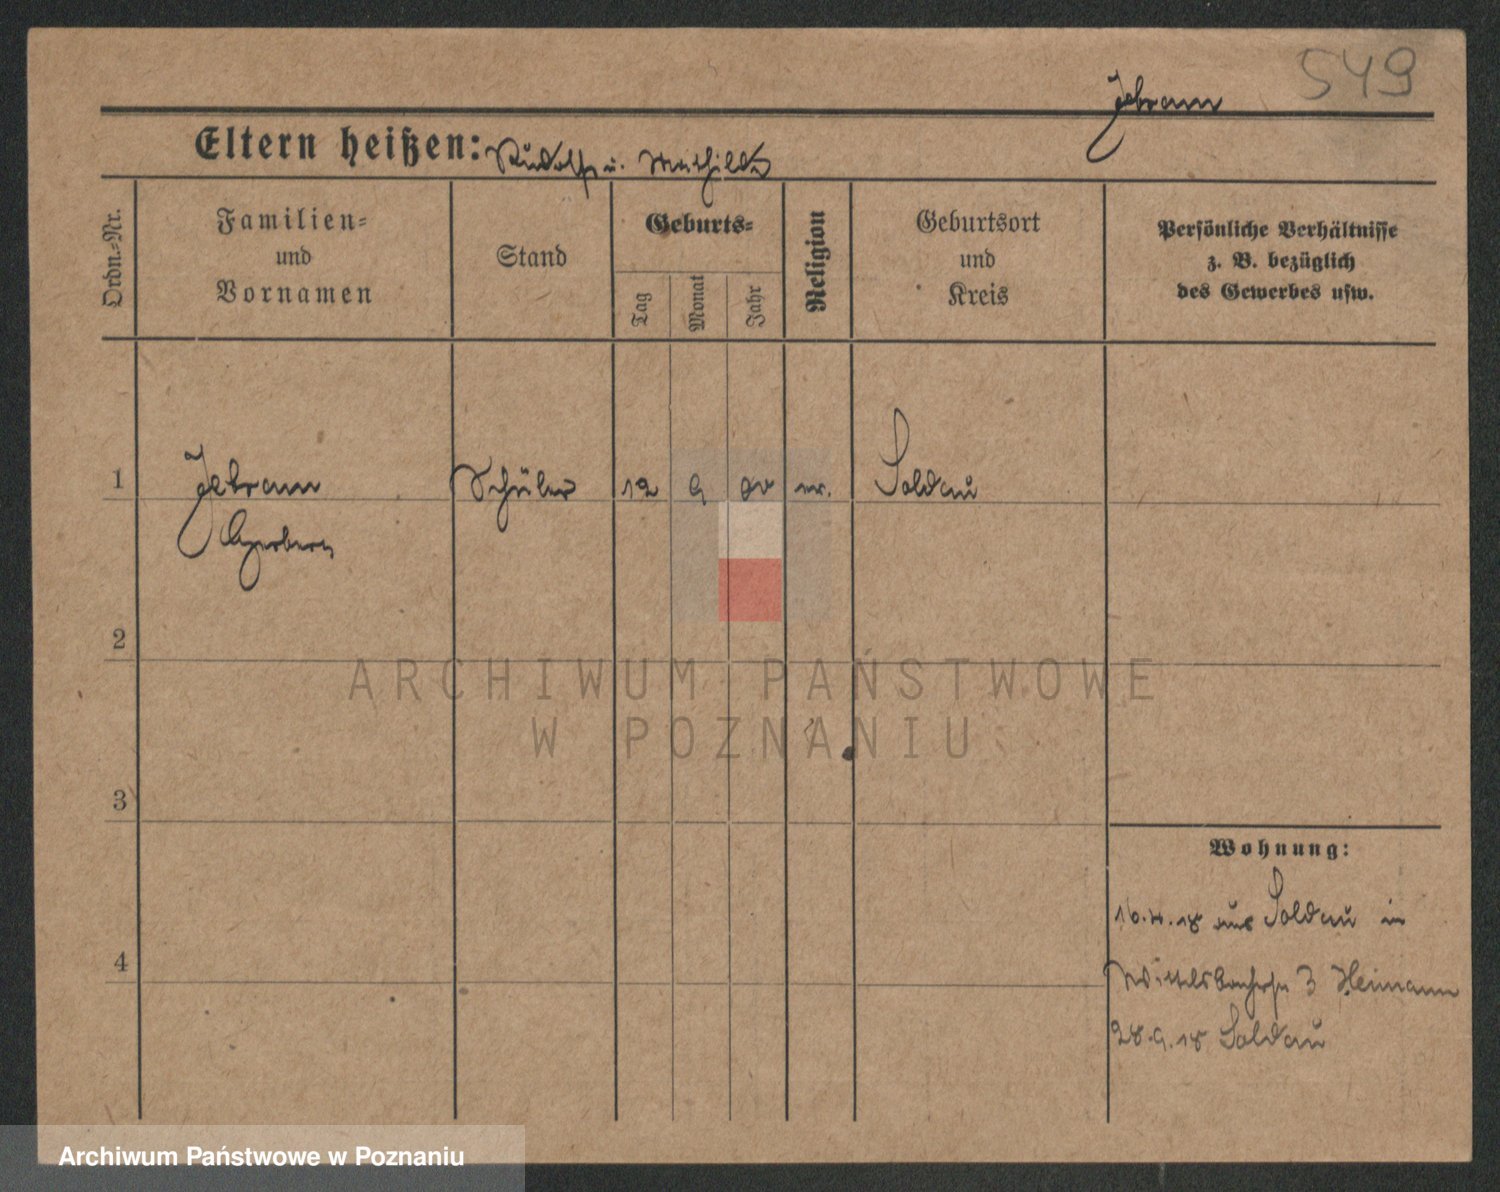 549
Jebram
Eltern heißen: Rudolf u. Mathilde
Ordn.-Nr.
Familien-
und
Vornamen
Stand
Geburts-
Tag
Monat
Jahr
Religion
Geburtsort
und
Kreis
Persönliche Verhältnisse
z. B. bezüglich
des Gewerbes usw.
1 Jebram Schüler 12 9 00 ev. Soldau
2
3
4
Wohnung:
16.4.18 aus Soldau in
Wittelsbacherstr 3 Heimann
28.9.18 Soldau
ARCHIWUM PAŃSTWOWE
W POZNANIU
Archiwum Państwowe w Poznaniu